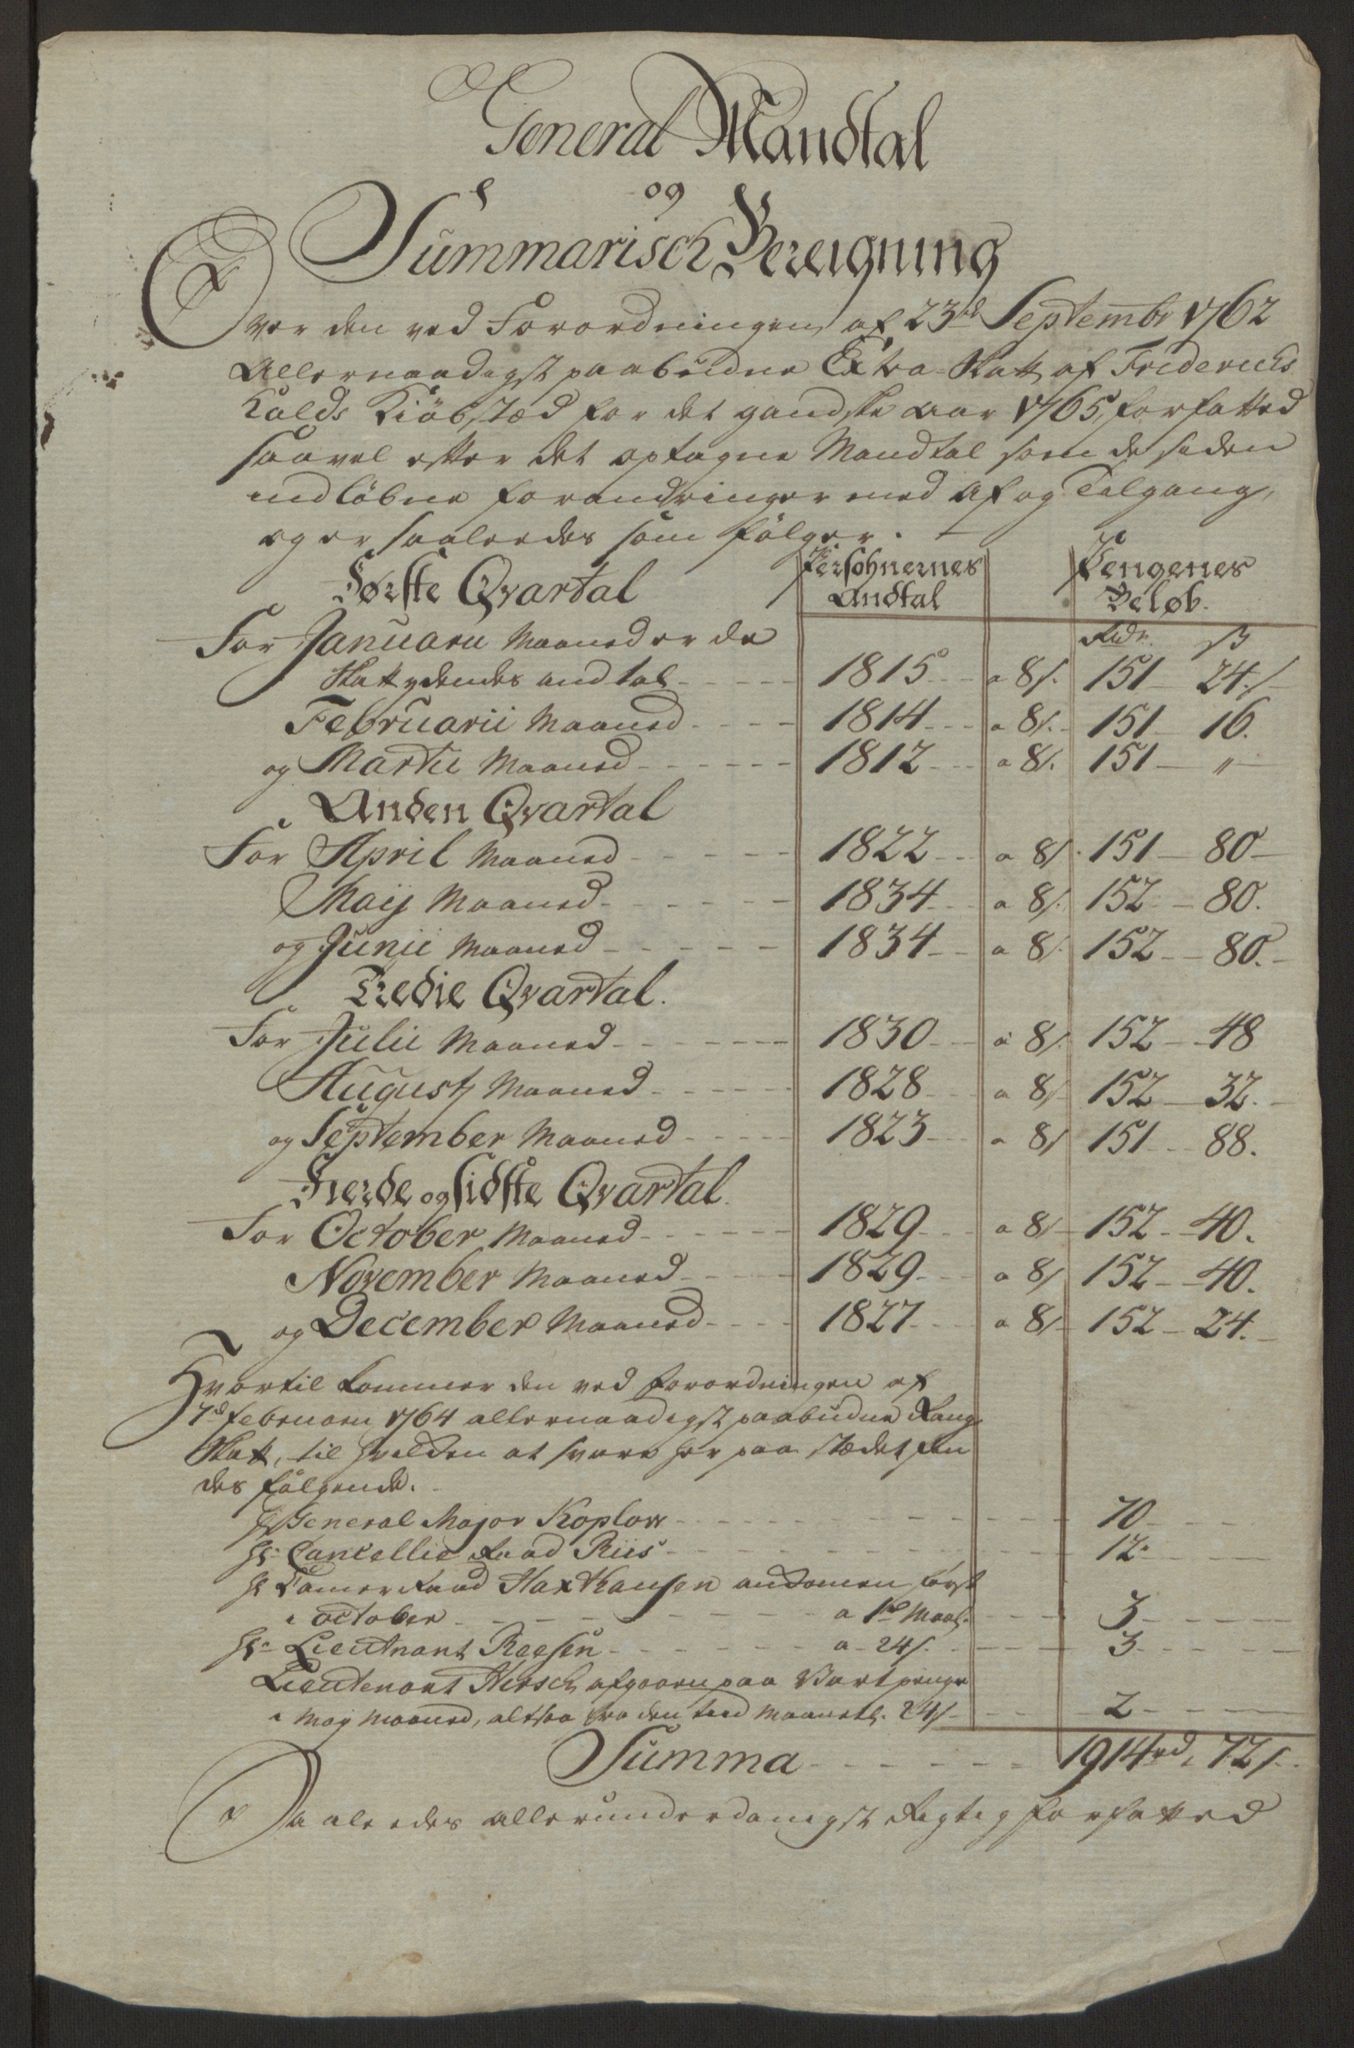 General Mandtal
og
Summarisch Bereigning
Over den ved Forordningen af 23de Septembr 1762
Allernaadigst paabudne Extra Skatt af Friderichs
halds Kiöbstæd for det gandske aar 1765, forfatted
saavel efter det optagne Mandtal som de siden
indløbne forandringer med Af og Tilgang,
og er saaledes som fölger.
Første Qvartal Persohnernes Andtal Pengenes Beløb.
Rdr. ß
For Januarii Maaned er de
Skattydendes andtal 1815 a 8/. 151 24/
Februarii Maaned 1814 a 8/. 151 16.
og Martii Maaned 1812 a 8/. 151 "
Anden Qvartal
For April Maaned 1822 a 8/. 151 80
Maij Maaned 1834 a 8/. 152 80.
og Junii Maaned 1834 a 8/. 152 80.
Tredie Qvartal.
For Julii Maaned 1830 a 8/ 152 48
Augusty Maaned 1828 a 8/ 152 32.
og September Maaned 1823 a 8/ 151 88.
Fierde og sidste Qvartal.
For October Maaned 1829 a 8/ 152 40.
November Maaned 1829 a 8/ 152 40.
og December Maaned 1827 a 8/ 152 24.
Hvortil kommer den ved forordningen af
7d februarii 1764 allernaadigst paabudne Rang
Skatt, til hvilken at svare her paa stædet fin
des fölgende.
Hr General Major Koplow 70
Hr. Cancellie Raad Riis 12.
Hr Camer Raad Haxthausen ankomen først
i october a 1rd Maal. 3
Hr. Lieutnant Reesen a 24/. 3
Lieutenant Hirsch afgaaen paa Vartpenge
i Maj Maaned, altsaa fra den tiid Maanetl. 24/. 2
Summa 1914rd, 72/.
Saaledes allerunderdanigst Rigtig forfatted